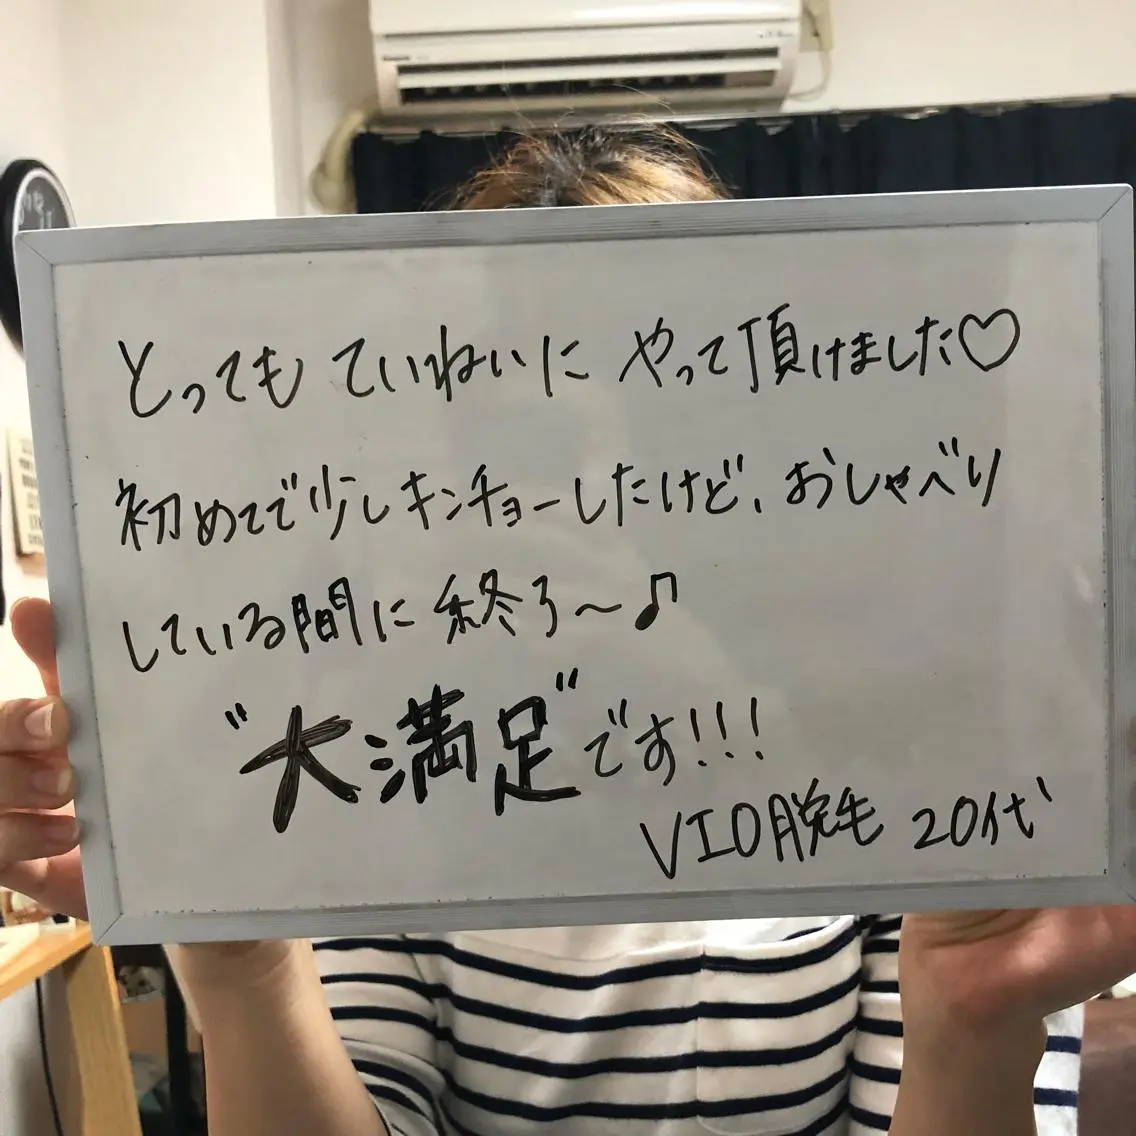 とっても ていねいに やって頂けました♡
初めてで少しキンチョーしたけど、おしゃべり
している間に終了〜♪
"大満足"です!!!
VIO脱毛 20代